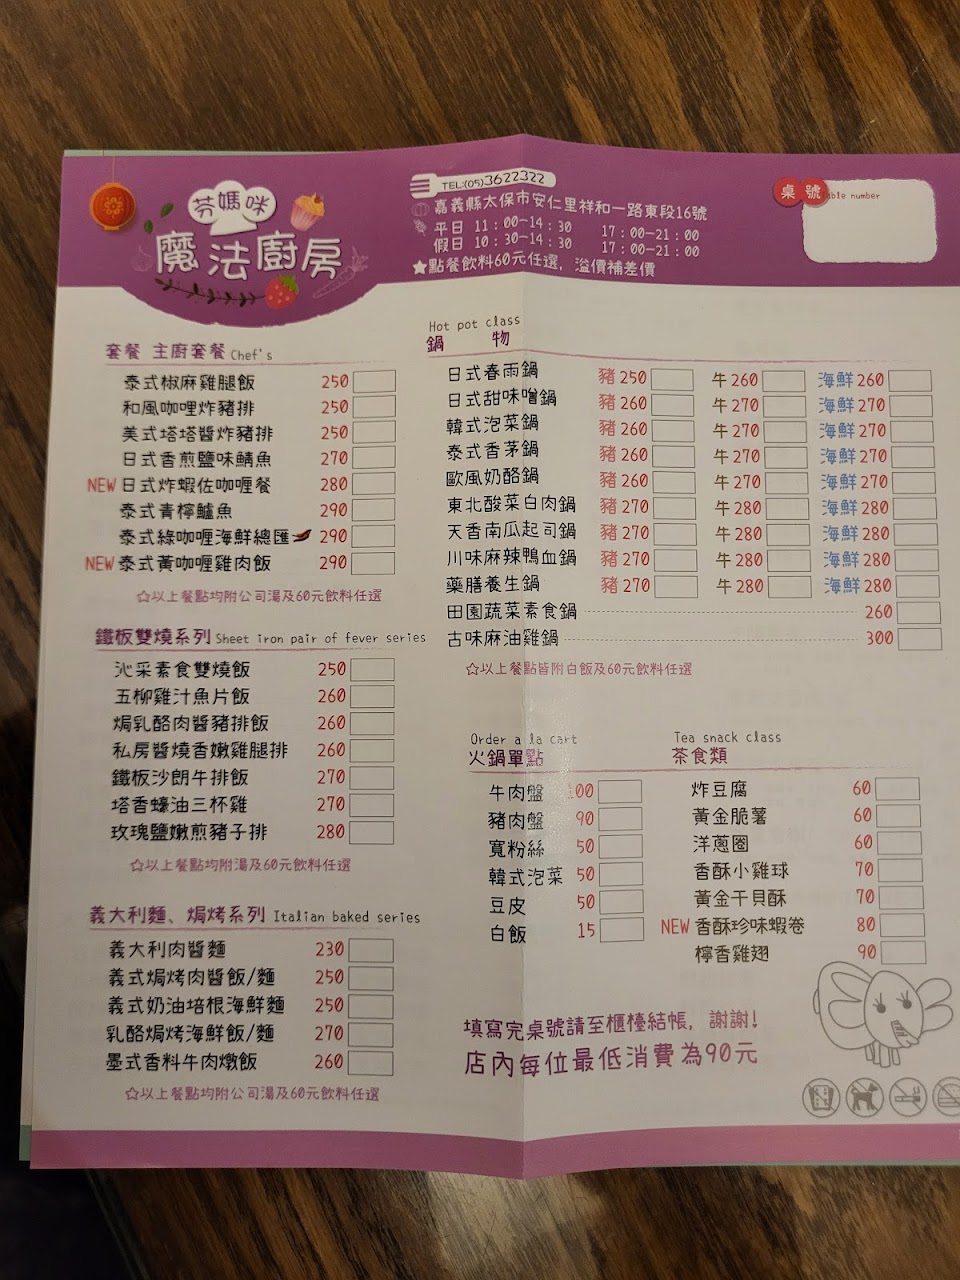 芬媽咪
魔法廚房
TEL:(05)3622322
嘉義縣太保市安仁里祥和一路東段16號
平日 11:00-14:30 17:00-21:00
假日 10:30-14:30 17:00-21:00
★點餐飲料60元任選, 溢價補差價
桌號 able number
套餐 主廚套餐 Chef's
泰式椒麻雞腿飯 250
和風咖哩炸豬排 250
美式塔塔醬炸豬排 250
日式香煎鹽味鯖魚 270
NEW 日式炸蝦佐咖喱餐 280
泰式青檸鱸魚 290
泰式綠咖喱海鮮總匯 290
NEW 泰式黃咖喱雞肉飯 290
☆以上餐點均附公司湯及60元飲料任選
鐵板雙燒系列 Sheet iron pair of fever series
沁采素食雙燒飯 250
五柳雞汁魚片飯 260
焗乳酪肉醬豬排飯 260
私房醬燒香嫩雞腿排 260
鐵板沙朗牛排飯 270
塔香蠔油三杯雞 270
玫瑰鹽嫩煎豬子排 280
☆以上餐點均附湯及60元飲料任選
義大利麵、焗烤系列 Italian baked series
義大利肉醬麵 230
義式焗烤肉醬飯/麵 250
義式奶油培根海鮮麵 250
乳酪焗烤海鮮飯/麵 270
墨式香料牛肉燉飯 260
☆以上餐點均附公司湯及60元飲料任選
Hot pot class
鍋 物
日式春雨鍋 豬250 牛260 海鮮260
日式甜味噌鍋 豬260 牛270 海鮮270
韓式泡菜鍋 豬260 牛270 海鮮270
泰式香茅鍋 豬260 牛270 海鮮270
歐風奶酪鍋 豬260 牛270 海鮮270
東北酸菜白肉鍋 豬270 牛280 海鮮280
天香南瓜起司鍋 豬270 牛280 海鮮280
川味麻辣鴨血鍋 豬270 牛280 海鮮280
藥膳養生鍋 豬270 牛280 海鮮280
田園蔬菜素食鍋 260
古味麻油雞鍋 300
☆以上餐點皆附白飯及60元飲料任選
Order a la cart
火鍋單點
牛肉盤 100
豬肉盤 90
寬粉絲 50
韓式泡菜 50
豆皮 50
白飯 15
Tea snack class
茶食類
炸豆腐 60
黃金脆薯 60
洋蔥圈 60
香酥小雞球 70
黃金干貝酥 70
NEW 香酥珍味蝦卷 80
檸香雞翅 90
填寫完桌號請至櫃檯結帳, 謝謝!
店內每位最低消費為90元